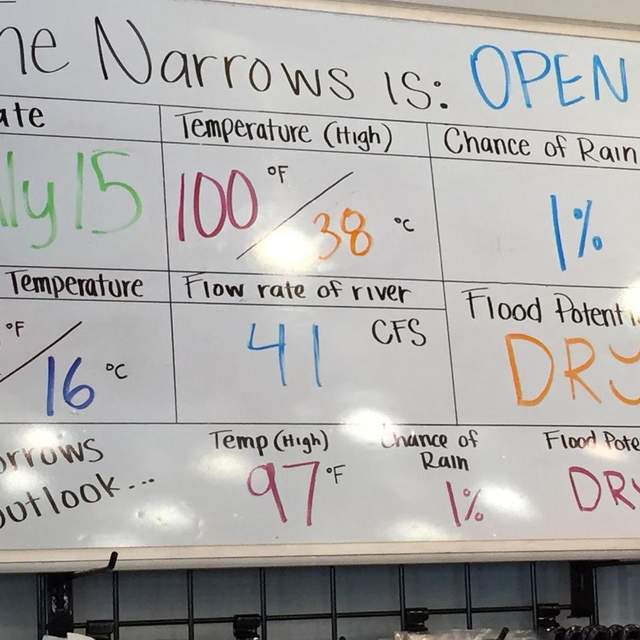 he Narrows is: OPEN
ate Temperature (High) Chance of Rain
ly 15 100 °F / 38 °C 1%
Temperature Flow rate of river Flood Potenti
°F / 16 °C 41 CFS DRY
orrows Temp (High) Chance of Rain Flood Pote
outlook... 97 °F 1% DRY